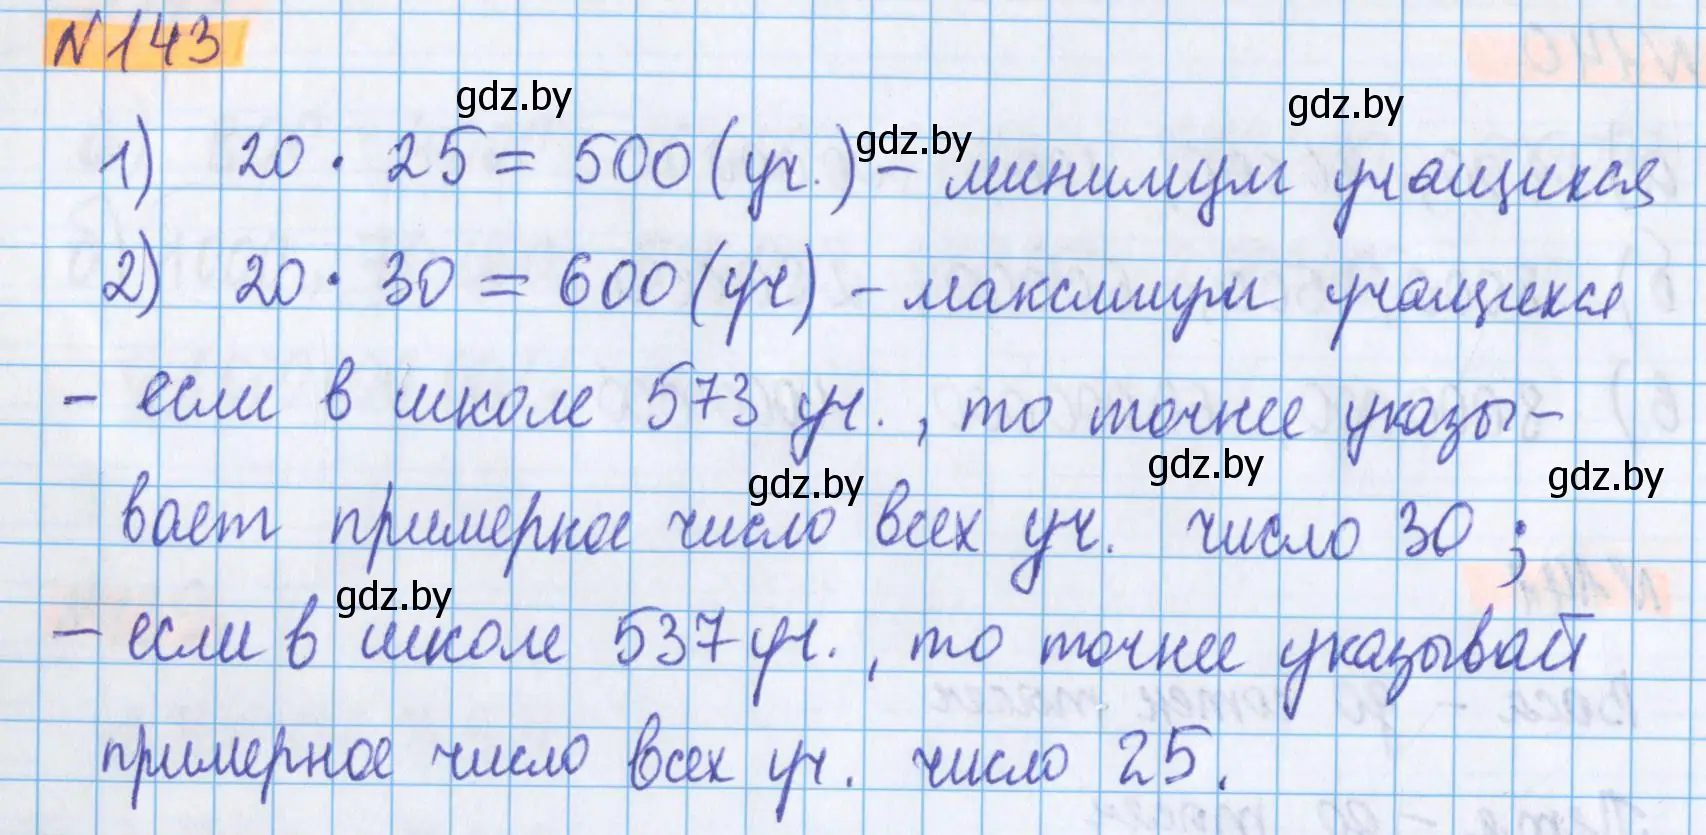 N143
gdz.by
gdz.by
gdz.by
1) 20 · 25 = 500 (уч.) – минимум учащихся
2) 20 · 30 = 600 (уч) – максимум учащихся
– если в школе 573 уч., то точнее указы-
gdz.by
gdz.by
gdz.by
вает примерное число всех уч. число 30;
gdz.by
– если в школе 537 уч., то точнее указывает
примерное число всех уч. число 25.